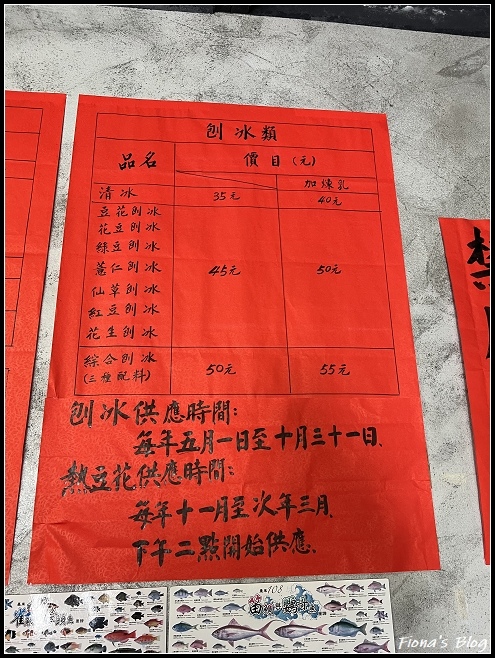 刨冰類
品名 價目(元)
加煉乳
清冰 35元 40元
豆花刨冰
花豆刨冰
綠豆刨冰
薏仁刨冰 45元 50元
仙草刨冰
紅豆刨冰
花生刨冰
綜合刨冰 50元 55元
(三種配料)
刨冰供應時間:
每年五月一日至十月三十一日、
熱豆花供應時間:
每年十一月至次年三月、
下午二點開始供應、
108
Fiona's Blog